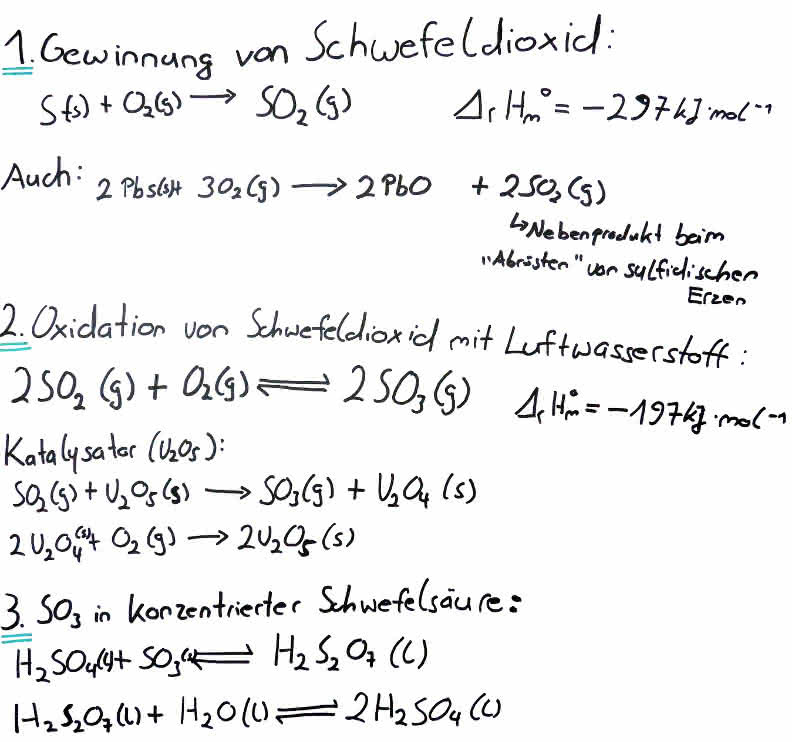 1. Gewinnung von Schwefeldioxid:
S(s) + O₂(g) ⟶ SO₂(g) ΔᵣHₘ° = -297kJ·mol⁻¹
Auch: 2 Pbs(s)+ 3O₂(g) ⟶ 2PbO + 2SO₂(g)
↳ Nebenprodukt beim
"Abrösten" von sulfidischen
Erzen
2. Oxidation von Schwefeldioxid mit Luftwasserstoff:
2SO₂(g) + O₂(g) ⇌ 2SO₃(g) ΔᵣHₘ° = -197kJ·mol⁻¹
Katalysator (V₂O₅):
SO₂(g) + V₂O₅(s) ⟶ SO₃(g) + V₂O₄(s)
2V₂O₄(s)+ O₂(g) ⟶ 2V₂O₅(s)
3. SO₃ in konzentrierter Schwefelsäure:
H₂SO₄(l)+ SO₃ ⇌ H₂S₂O₇(l)
H₂S₂O₇(l) + H₂O(l) ⇌ 2H₂SO₄(l)